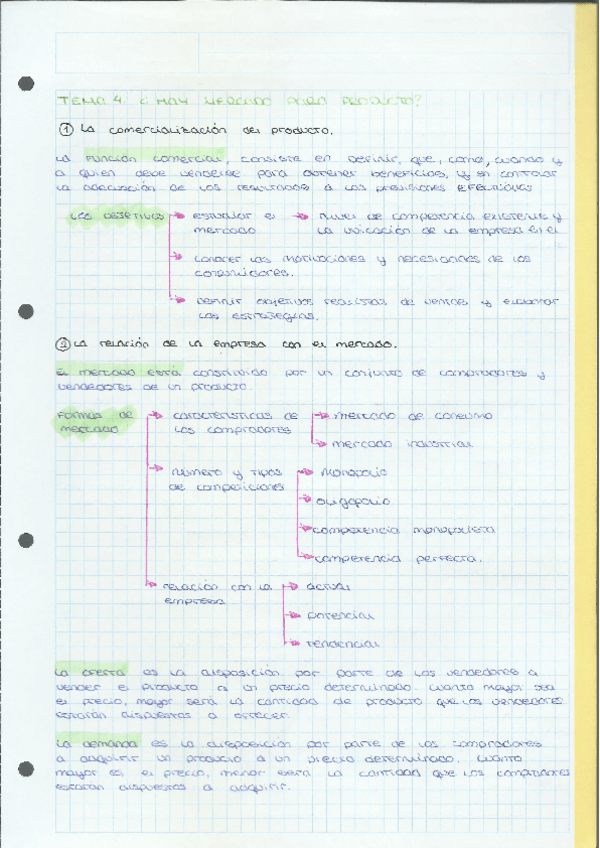 TEMA 4. ¿ HAY MERCADO PARA PRODUCTO?
① La comercialización del producto.
La función comercial, consiste en definir, que, como, cuando y
a quien debe venderse para obtener beneficios, y en controlar
la adecuación de los resultados a las previsiones efectuadas
Los objetivos → estudiar el → nivel de competencia existente y
mercado la ubicación de la empresa en el
→ conocer las motivaciones y necesidades de los
consumidores.
→ Definir objetivos realistas de ventas y elaborar
las estrategias.
② La relación de la empresa con el mercado.
El mercado está constituido por un conjunto de compradores y
vendedores de un producto.
Formas de → características de → mercado de consumo
mercado los compradores
→ mercado industrial
→ número y tipos → Monopolio
de competidores
→ oligopolio
→ competencia monopolista
→ competencia perfecta.
→ relación con la → actual
empresa
→ potencial
→ tendencial
La oferta es la disposición por parte de los vendedores a
vender el producto a un precio determinado. Cuanto mayor sea
el precio, mayor será la cantidad de producto que los vendedores
estarán dispuestos a ofrecer.
La demanda es la disposición por parte de los compradores
a adquirir un producto a un precio determinado. Cuanto
mayor es el precio, menor será la cantidad que los compradores
estarán dispuestos a adquirir.